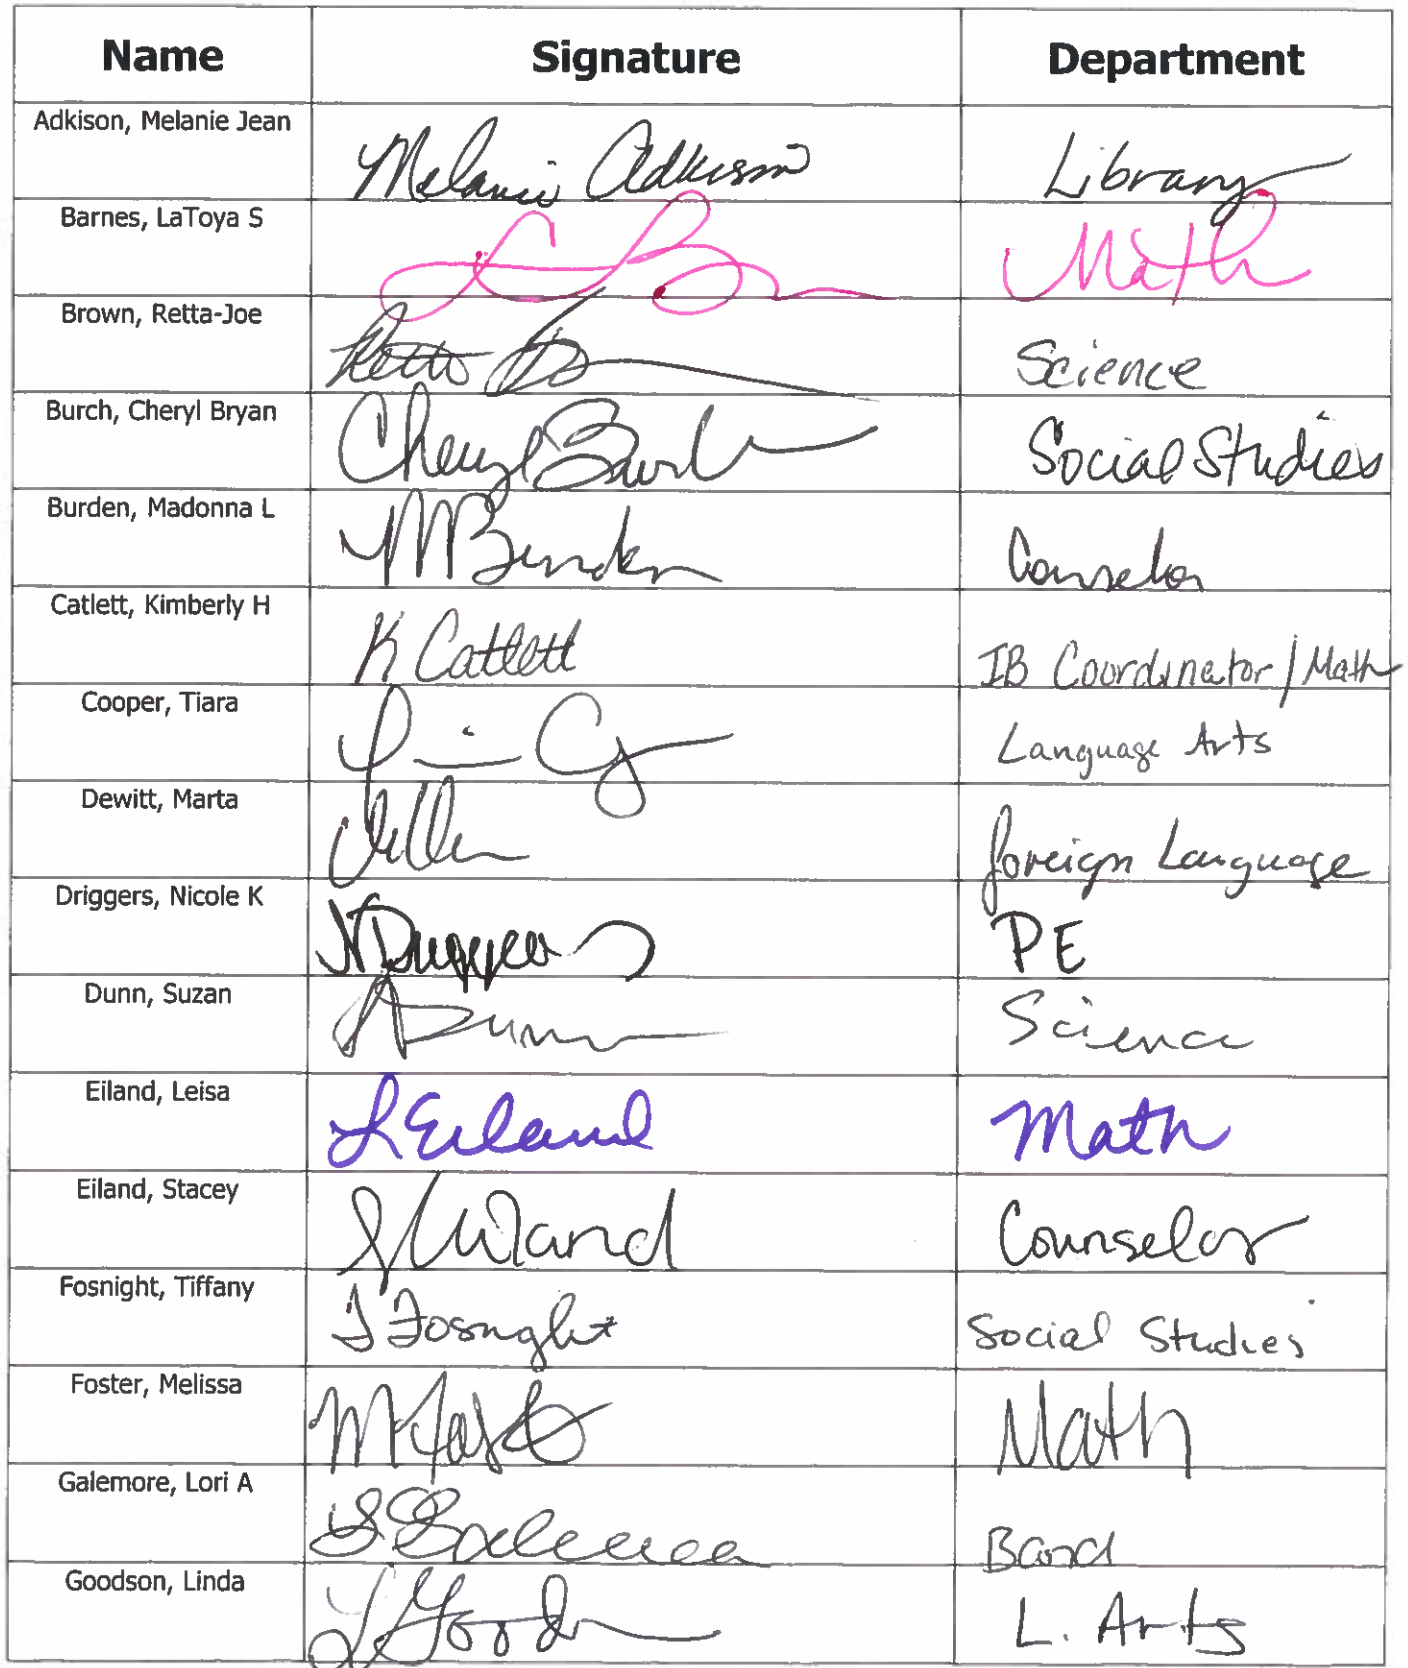 Name Signature Department
Adkison, Melanie Jean Melanie Adkison Library
Barnes, LaToya S L B Math
Brown, Retta-Joe Retta B Science
Burch, Cheryl Bryan Cheryl Burch Social Studies
Burden, Madonna L MBurden Counselor
Catlett, Kimberly H K Catlett IB Coordinator/Math
Cooper, Tiara Language Arts
Dewitt, Marta foreign Language
Driggers, Nicole K NDriggers PE
Dunn, Suzan SDunn Science
Eiland, Leisa LEiland Math
Eiland, Stacey SEiland Counselor
Fosnight, Tiffany T Fosnight Social Studies
Foster, Melissa M Foster Math
Galemore, Lori A Band
Goodson, Linda L Goodson L. Arts